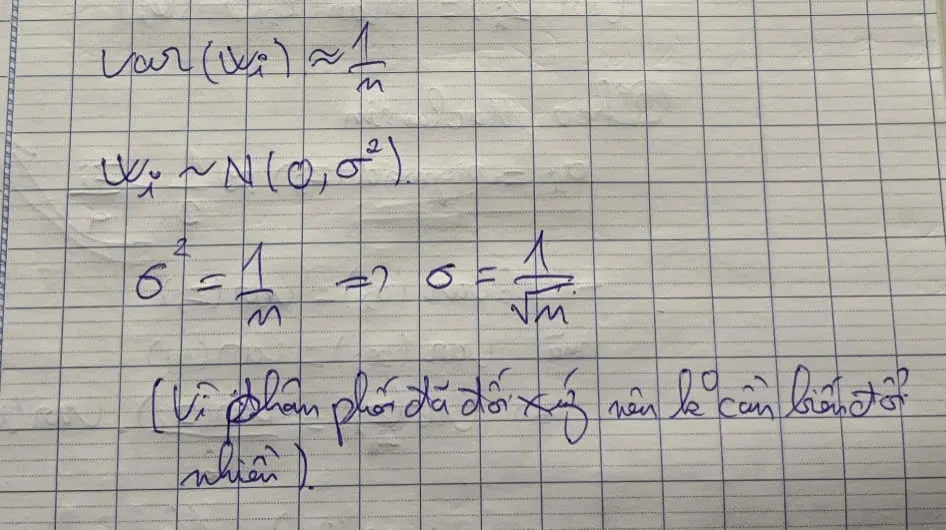 var(wᵢ) ≈ 1/n
wᵢ ~ N(0, σ²).
σ² = 1/n => σ = 1/√n
(Vì phân phối đã đối xứng nên k° cần biến đổi
nhiều).